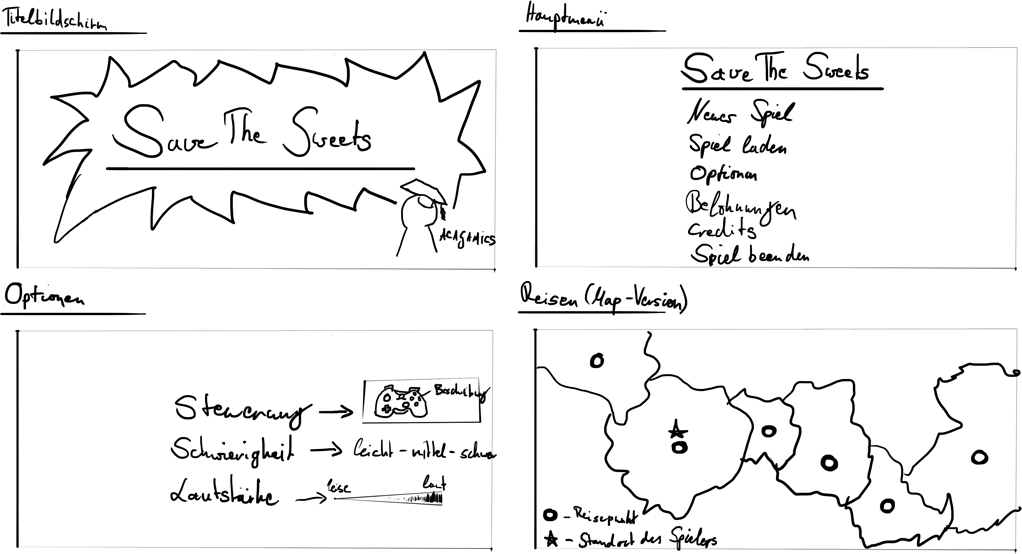 Titelbildschirm
Save The Sweets
ACAGAMICS
Hauptmenü
Save The Sweets
Neues Spiel
Spiel laden
Optionen
Belohnungen
Credits
Spiel beenden
Optionen
Steuerung
Beschriftung
Schwierigkeit
leicht - mittel - schwer
Lautstärke
leise
laut
Reisen (Map-Version)
- Reisepunkt
- Standort des Spielers